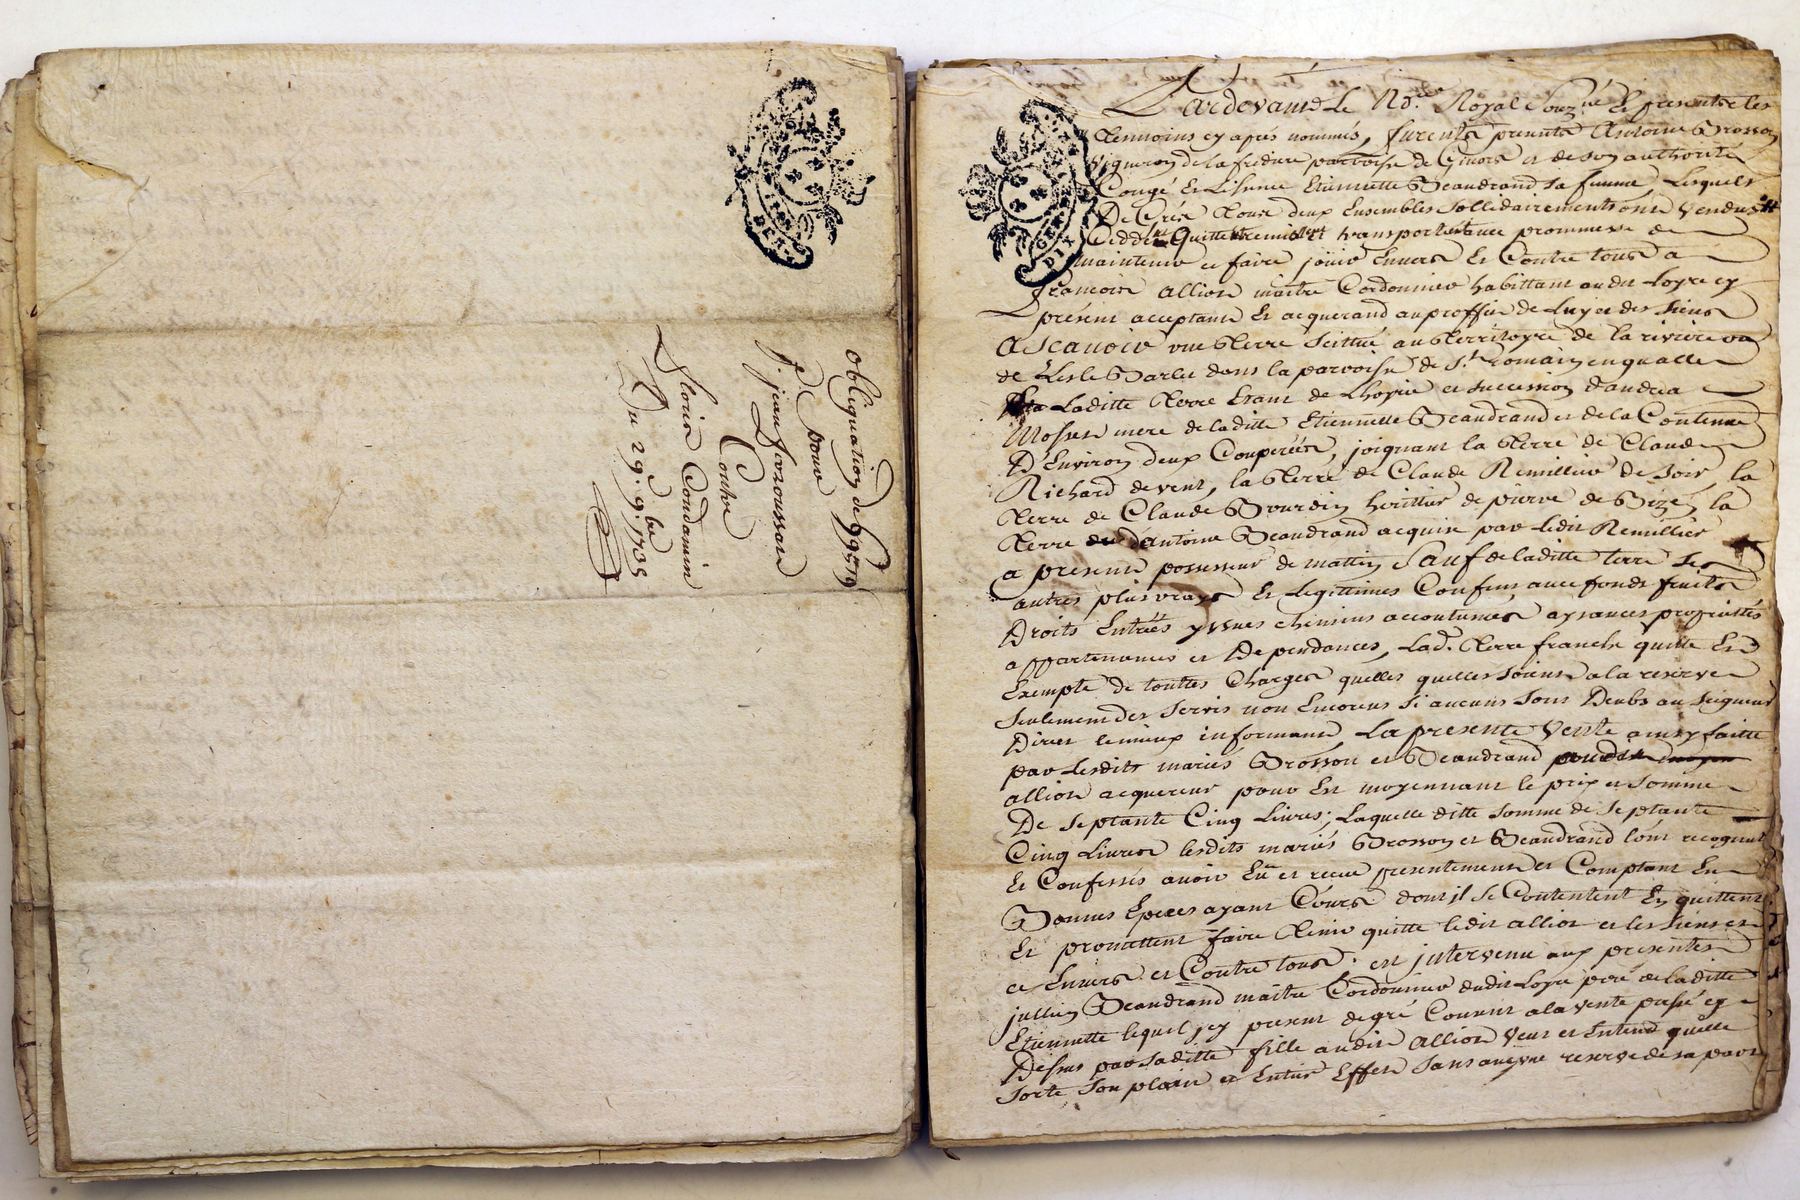 obligation de 99tt 19
pour
Sr. jean
Contre
floris Condamin
Du 29. 9bre 1735
Pardevant Le No.re Royal Souz.né Et presents les
temoins cy aprés nommés, furents presents Antoine Brosson
Vigneron de la fredière parroisse de Givors et de son authorité
Congé Et Lisence Etiennette Beaudrand sa femme, Lesquels
De Grés tous deux Ensembles sollidairements ont vendus
Ceddés Quitte remis et transportés avec prommesse de
maintenir et faire joüir Envers Et Contre tous a
francois allion maitre Cordonnier habittant audit Loyre cy
présent acceptant Et acquerand au proffit de Luy et des siens
Ascavoir une terre scittué au territoyre de la riviere ou
de Lisle Barlet dans la parroisse de St. Romain en qualle
Laditte terre Etant de Lhoyrie et succession d'andréa
mere de laditte Etiennette Beaudrand et de la Contenue
D'Environ deux Couperées, joignant la terre de Claude
Richard de vent, la terre de Claude Remillier de soir, la
terre de Claude Bourdin herittier de pierre de Bize, la
terre d'antoine Beaudrand acquise par ledit Remillier
a present possesseur de mattin Sauf de laditte terre ses
autres plus vrays Et Legittimes Confins, avec fonds fruits
Droits Entrées yssues chemins accoutumés aysances proprietés
appartenances et Dependances, Lad. terre franche quitte Et
Exempte de touttes Charges quelles quelles soient a la reserve
seulement des servis non Encourus si aucuns sont Deubs au seigneur
Direct le mieux informant La presente vente ainsy faitte
par Lesdits mariés Brosson et Beaudrand
allion acquereur pour Et moyennant le prix et somme
De septante Cinq Livres; Laquelle ditte somme de septante
Cinq Livres lesdits mariés Brosson et Beaudrand l'ont
Et Confessés avoir Eü et receu presentement et Comptant En
Bonnes Epeces ayant Cours dont il se Contentent En quittent
Et promettent faire tenir quitte ledit allion et les siens
Envers et Contre tous. est jntervenu aux presentes
jullien Beaudrand maître Cordonnier dudit Loyre peré de laditte
Etiennette lequel jcy present de gré Consent a la vente passé cy
Dessus par saditte fille audit allion veut et Entend qu'elle
sorte son plain et Entier Effet sans aucune reserve de sa part